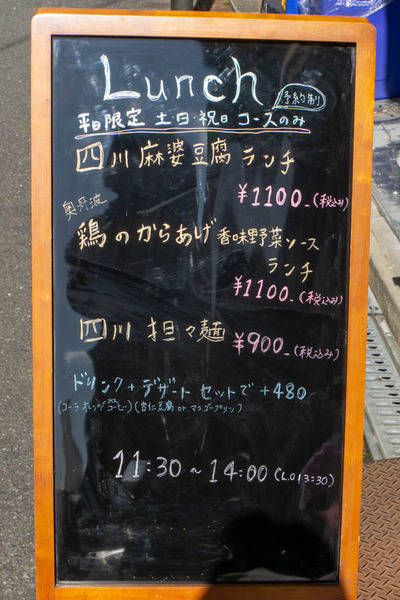 Lunch
予約制
平日限定 土日・祝日 コースのみ
四川麻婆豆腐 ランチ
¥1100-(税込み)
奥丹波
鶏のからあげ 香味野菜ソース
ランチ
¥1100-(税込み)
四川 担々麺 ¥900-(税込み)
ドリンク+デザート セットで +480
(杏仁豆腐 or マンゴープリン)
11:30～14:00(L.O13:30)